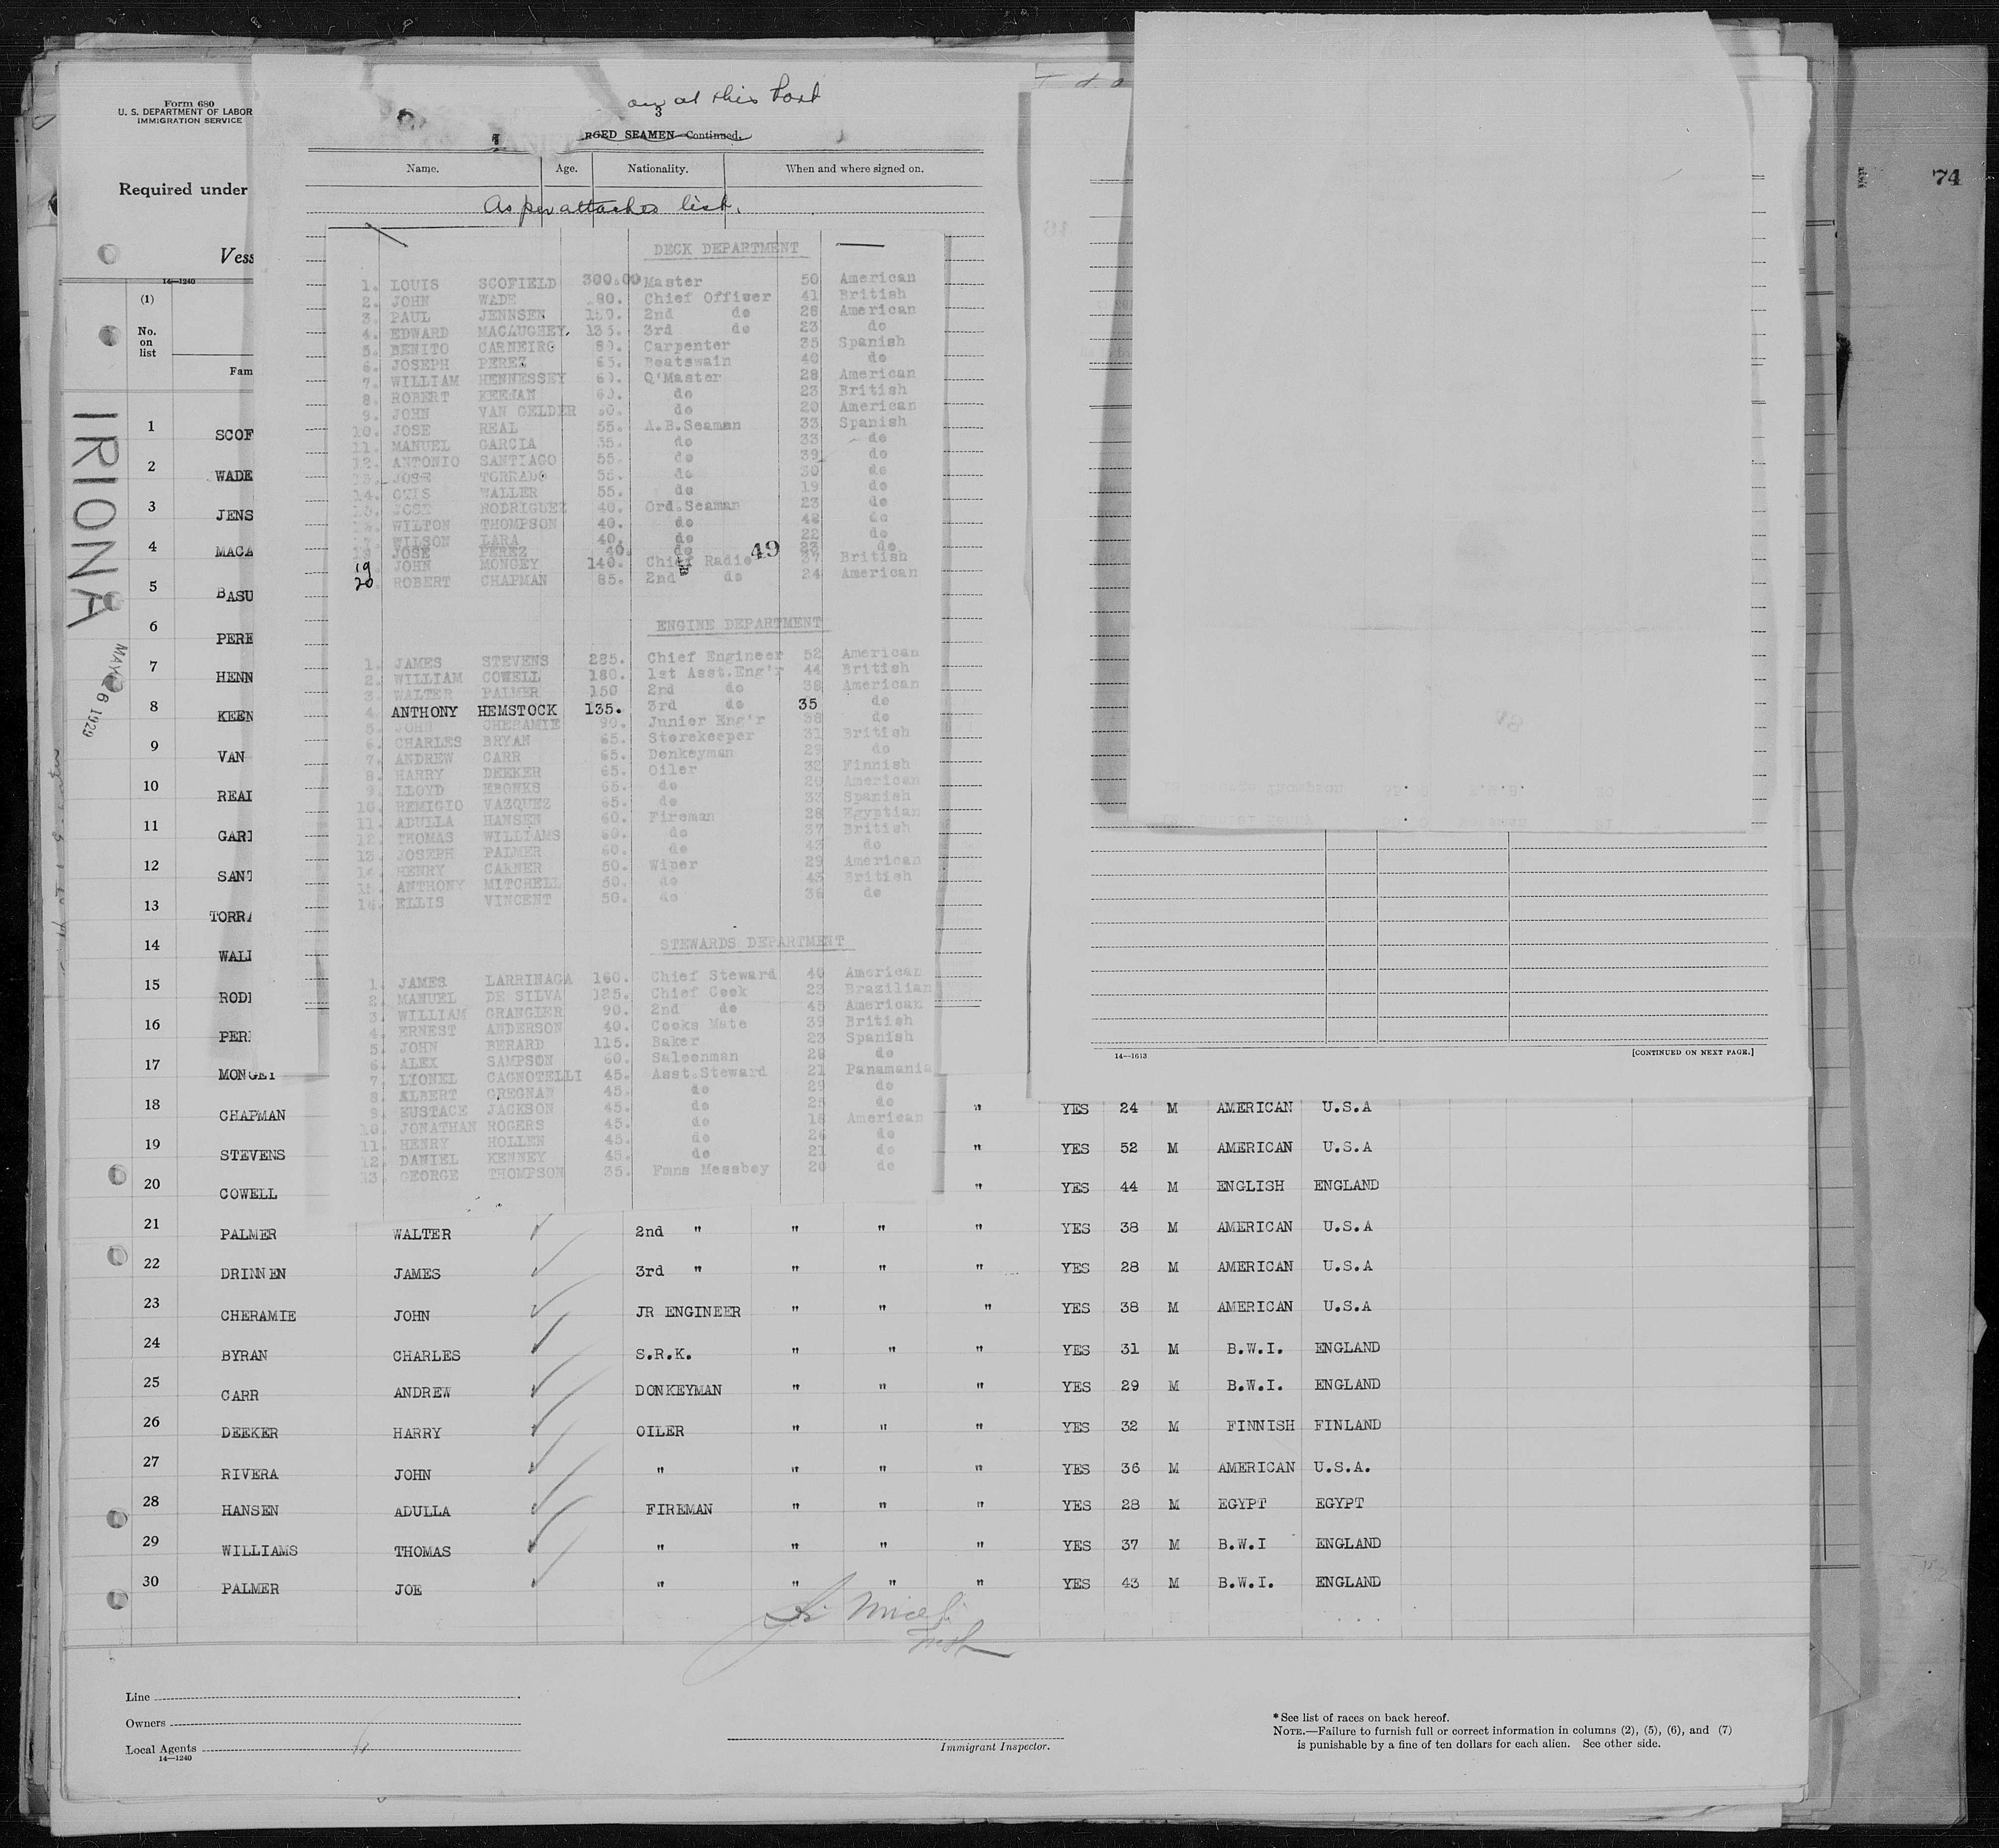 74
Form 680
U. S. DEPARTMENT OF LABOR
IMMIGRATION SERVICE
Required under
Vess
14—1240
(1)
No.
on
list
Fam
IRIONA
MAY 6 1929
at this Port
3
RGED SEAMEN—Continued.
Name. Age. Nationality. When and where signed on.
As per attached list.
DECK DEPARTMENT
1. LOUIS SCOFIELD 300.00 Master 50 American
2. JOHN WADE 80. Chief Officer 41 British
3. PAUL JENNSEN 150. 2nd do 28 American
4. EDWARD MACAUGHEY. 135. 3rd do 23 do
5. BENITO CARNEIRO 80. Carpenter 35 Spanish
6. JOSEPH PEREZ 65. Boatswain 40 do
7. WILLIAM HENNESSEY 60. Q'Master 28 American
8. ROBERT KEENAN 60. do 23 British
9. JOHN VAN GELDER 60. do 20 American
10. JOSE REAL 55. A.B.Seaman 33 Spanish
11. MANUEL GARCIA 55. do 33 do
12. ANTONIO SANTIAGO 55. do 39 do
13. JOSE TORRADO 55. do 30 do
14. OTIS WALLER 55. do 19 do
15. JOSE RODRIGUEZ 40. Ord.Seaman 23 do
16. WILTON THOMPSON 40. do 42 do
17. WILSON LARA 40. do 22 do
18 JOSE PEREZ 40. do 49 23 do
19 JOHN MONGEY 140. Chief Radio 37 British
20 ROBERT CHAPMAN 85. 2nd do 24 American
ENGINE DEPARTMENT
1. JAMES STEVENS 225. Chief Engineer 52 American
2. WILLIAM COWELL 180. 1st Asst.Eng'r 44 British
3. WALTER PALMER 150 2nd do 38 American
4. ANTHONY HEMSTOCK 135. 3rd do 35 do
5. JOHN CHERAMIE 90. Junier Eng'r 38 do
6. CHARLES BRYAN 65. Storekeeper 31 British
7. ANDREW CARR 65. Donkeyman 29 do
8. HARRY DEEKER 65. Oiler 32 Finnish
9. LLOYD EBONKS 65. do 20 American
10. REMIGIO VAZQUEZ 65. do 33 Spanish
11. ADULLA HANSEN 60. Fireman 28 Egyptian
12. THOMAS WILLIAMS 60. do 37 British
13. JOSEPH PALMER 60. do 43 do
14. HENRY CARNER 50. Wiper 29 American
15. ANTHONY MITCHELL 50. do 43 British
16. ELLIS VINCENT 50. do 36 do
STEWARDS DEPARTMENT
1. JAMES LARRINAGA 160. Chief Steward 40 American
2. MANUEL DE SILVA 125. Chief Cook 23 Brazilian
3. WILLIAM GRANGIER 90. 2nd do 45 American
4. ERNEST ANDERSON 40. Cooks Mate 39 British
5. JOHN BERARD 115. Baker 23 Spanish
6. ALEX SAMPSON 60. Saloonman 28 do
7. LIONEL CAGNOTELLI 45. Asst.Steward 21 Panamania
8. ALBERT GREGNAN 45. do 29 do
9. EUSTACE JACKSON 45. do 25 do
10. JONATHAN ROGERS 45. do 18 American
11. HENRY HOLLEN 45. do 26 do
12. DANIEL KENNEY 45. do 21 do
13. GEORGE THOMPSON 35. Fmns Messboy 20 do
1 SCOF
2 WADE
3 JENS
4 MACA
5 BASU
6 PERE
7 HENN
8 KEEN
9 VAN
10 REAL
11 GARI
12 SANT
13 TORRA
14 WALL
15 RODI
16 PER
17 MONGEY
14—1613 [CONTINUED ON NEXT PAGE.]
18 CHAPMAN " YES 24 M AMERICAN U.S.A
19 STEVENS " YES 52 M AMERICAN U.S.A
20 COWELL " YES 44 M ENGLISH ENGLAND
21 PALMER WALTER 2nd " " " " YES 38 M AMERICAN U.S.A
22 DRINNEN JAMES 3rd " " " " YES 28 M AMERICAN U.S.A
23 CHERAMIE JOHN JR ENGINEER " " " YES 38 M AMERICAN U.S.A
24 BYRAN CHARLES S.R.K. " " " YES 31 M B.W.I. ENGLAND
25 CARR ANDREW DONKEYMAN " " " YES 29 M B.W.I. ENGLAND
26 DEEKER HARRY OILER " " " YES 32 M FINNISH FINLAND
27 RIVERA JOHN " " " " YES 36 M AMERICAN U.S.A.
28 HANSEN ADULLA FIREMAN " " " YES 28 M EGYPT EGYPT
29 WILLIAMS THOMAS " " " " YES 37 M B.W.I ENGLAND
30 PALMER JOE " " " " YES 43 M B.W.I. ENGLAND
Line
Owners
Local Agents
14—1240
Immigrant Inspector.
* See list of races on back hereof.
NOTE.—Failure to furnish full or correct information in columns (2), (5), (6), and (7)
is punishable by a fine of ten dollars for each alien. See other side.